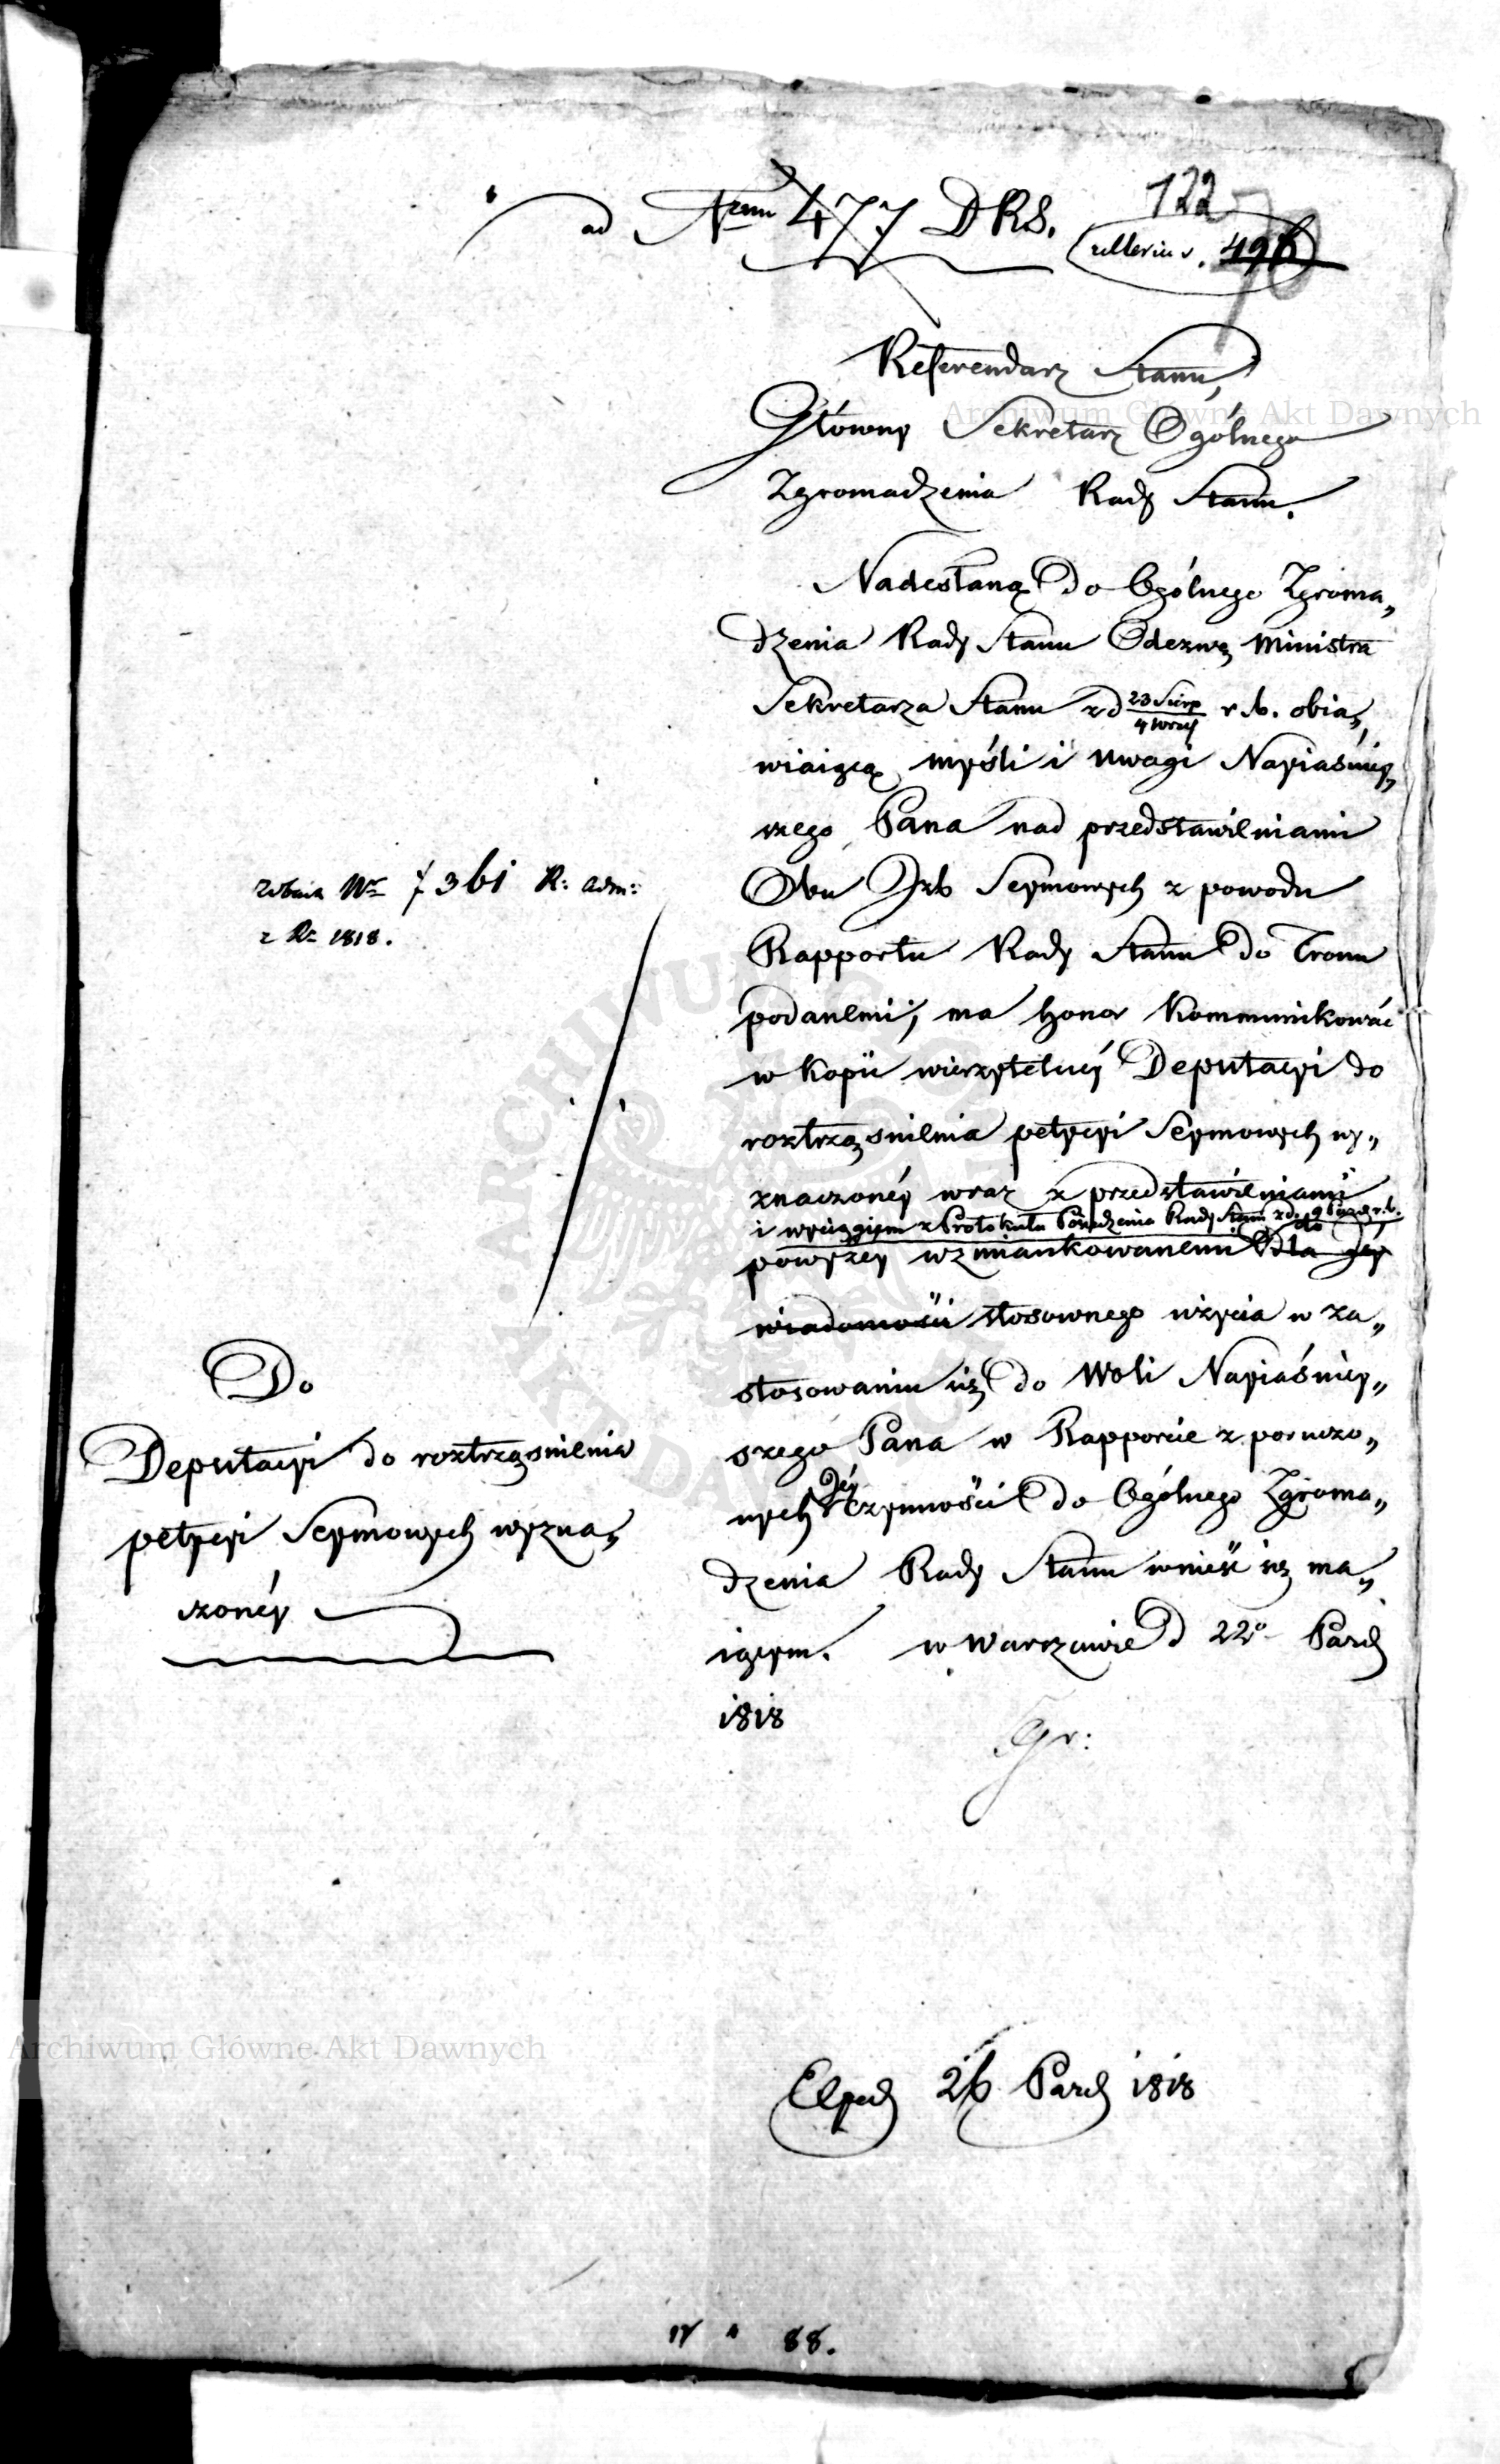 ad Nrum 477 DRS.
122
ulterius. 496
Referendarz Stanu,
Główny Sekretarz Ogólnego
Zgromadzenia Rady Stanu.
Nadesłaną do Ogólnego Zgroma„
dzenia Rady Stanu Odezwę Ministra
Sekretarza Stanu z d 23 Sierp / 4 Wrześ r. b. obia„
wiaiącą myśli i uwagi Nayiaśniey„
szego Pana nad przedstawieniami
Obu Izb Seymowych z powodu
Rapportu Rady Stanu do Tronu
podanemi, ma honor kommunikować
w kopii wierzytelnéy Deputacyi do
roztrząśnienia petycyi Seymowych wy„
znaczonéy wraz z przedstawieniami
i wyciągiem z Protokułu Posiedzenia Rady Stanu z d. 9 Paźd r. b.
powyżey wzmiankowanemi do dla Jéy
wiadomości stosownego użycia w za„
stosowaniu się do Woli Nayiaśniey„
szego Pana w Rapporcie z poruczo„
nych Jéy czynności do Ogólnego Zgroma„
dzenia Rady Stanu wnieść się ma„
iącym. w Warszawie d 22o Pazd
1818
Gr:
Nr 7361 R: adm:
z R= 1818.
Do
Deputacyi do roztrząśnienia
petycyi Seymowych wyzna„
czonéy
Exped 26 Pazd 1818
88.
Archiwum Główne Akt Dawnych
Archiwum Główne Akt Dawnych
ARCHIWUM GŁÓWNE
AKT DAWNYCH